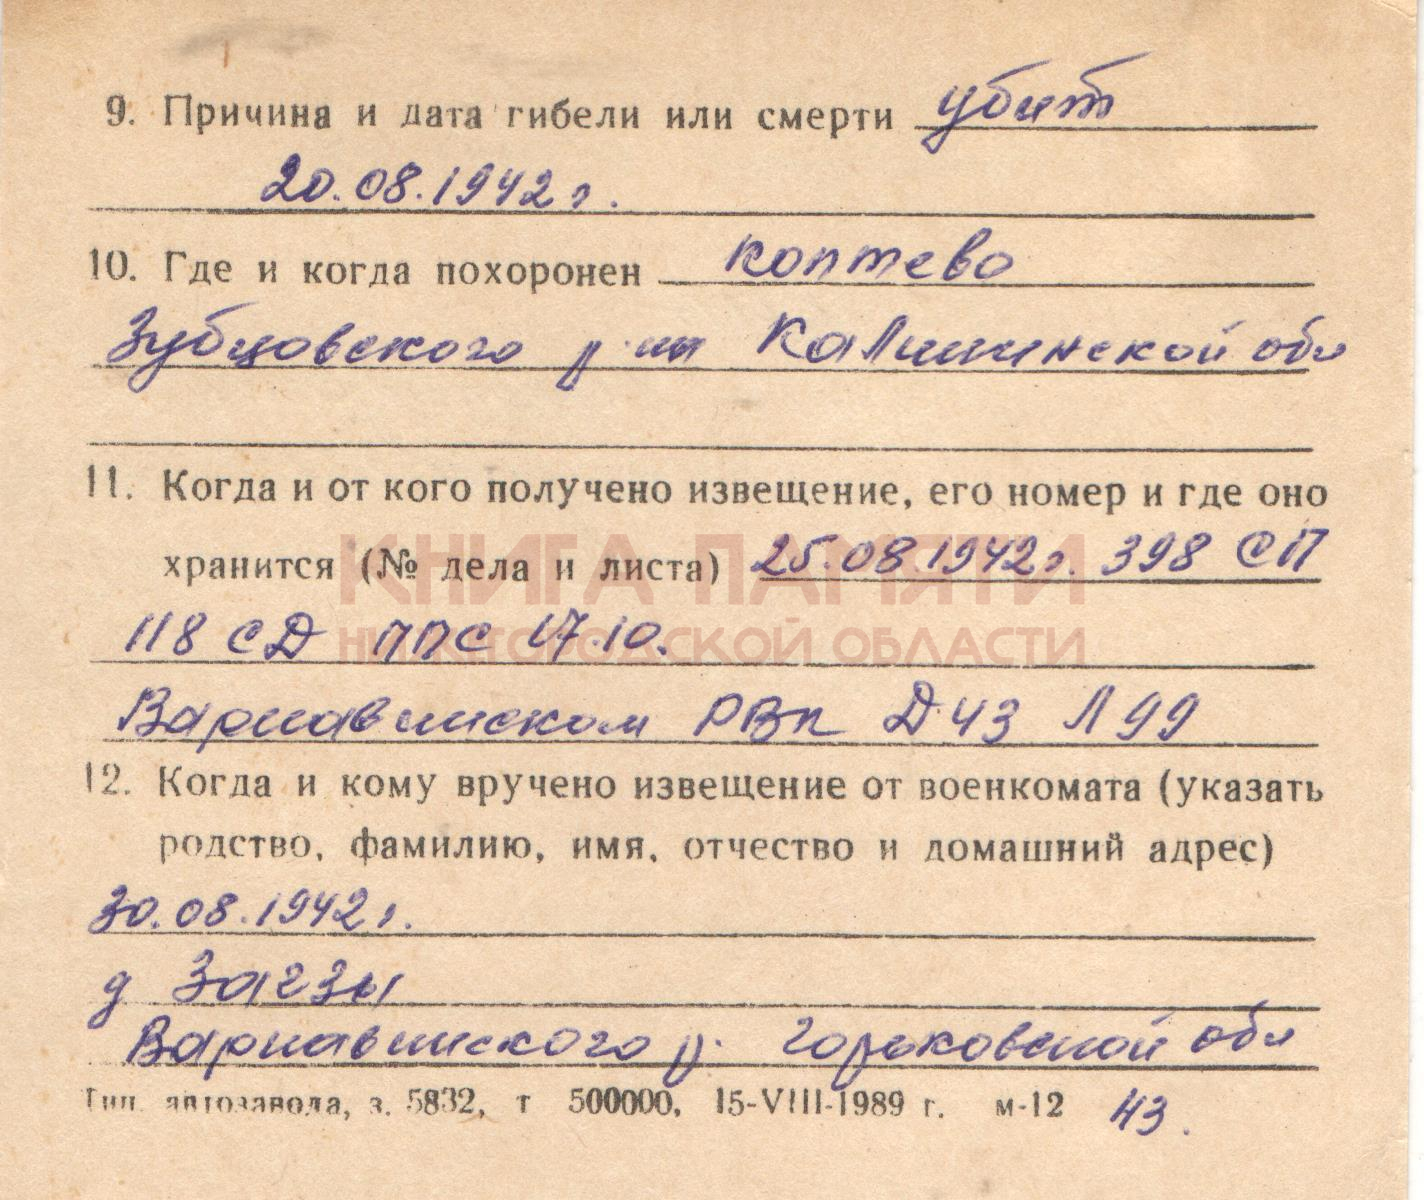 9. Причина и дата гибели или смерти убит
20.08.1942 г.
10. Где и когда похоронен Коптево
Зубцовского р-на Калининской обл
11. Когда и от кого получено извещение, его номер и где оно
хранится (№ дела и листа) 25.08 1942 г. 398 СП
КНИГА ПАМЯТИ
118 СД ППС 17.10.
НИЖЕГОРОДСКОЙ ОБЛАСТИ
Варнавинском РВК Д 43 Л 99
12. Когда и кому вручено извещение от военкомата (указать
родство, фамилию, имя, отчество и домашний адрес)
30.08.1942 г.
д Загзы
Варнавинского р. Горьковской обл
Тип. автозавода, з. 5832, т 500000, 15-VIII-1989 г. м-12 43.